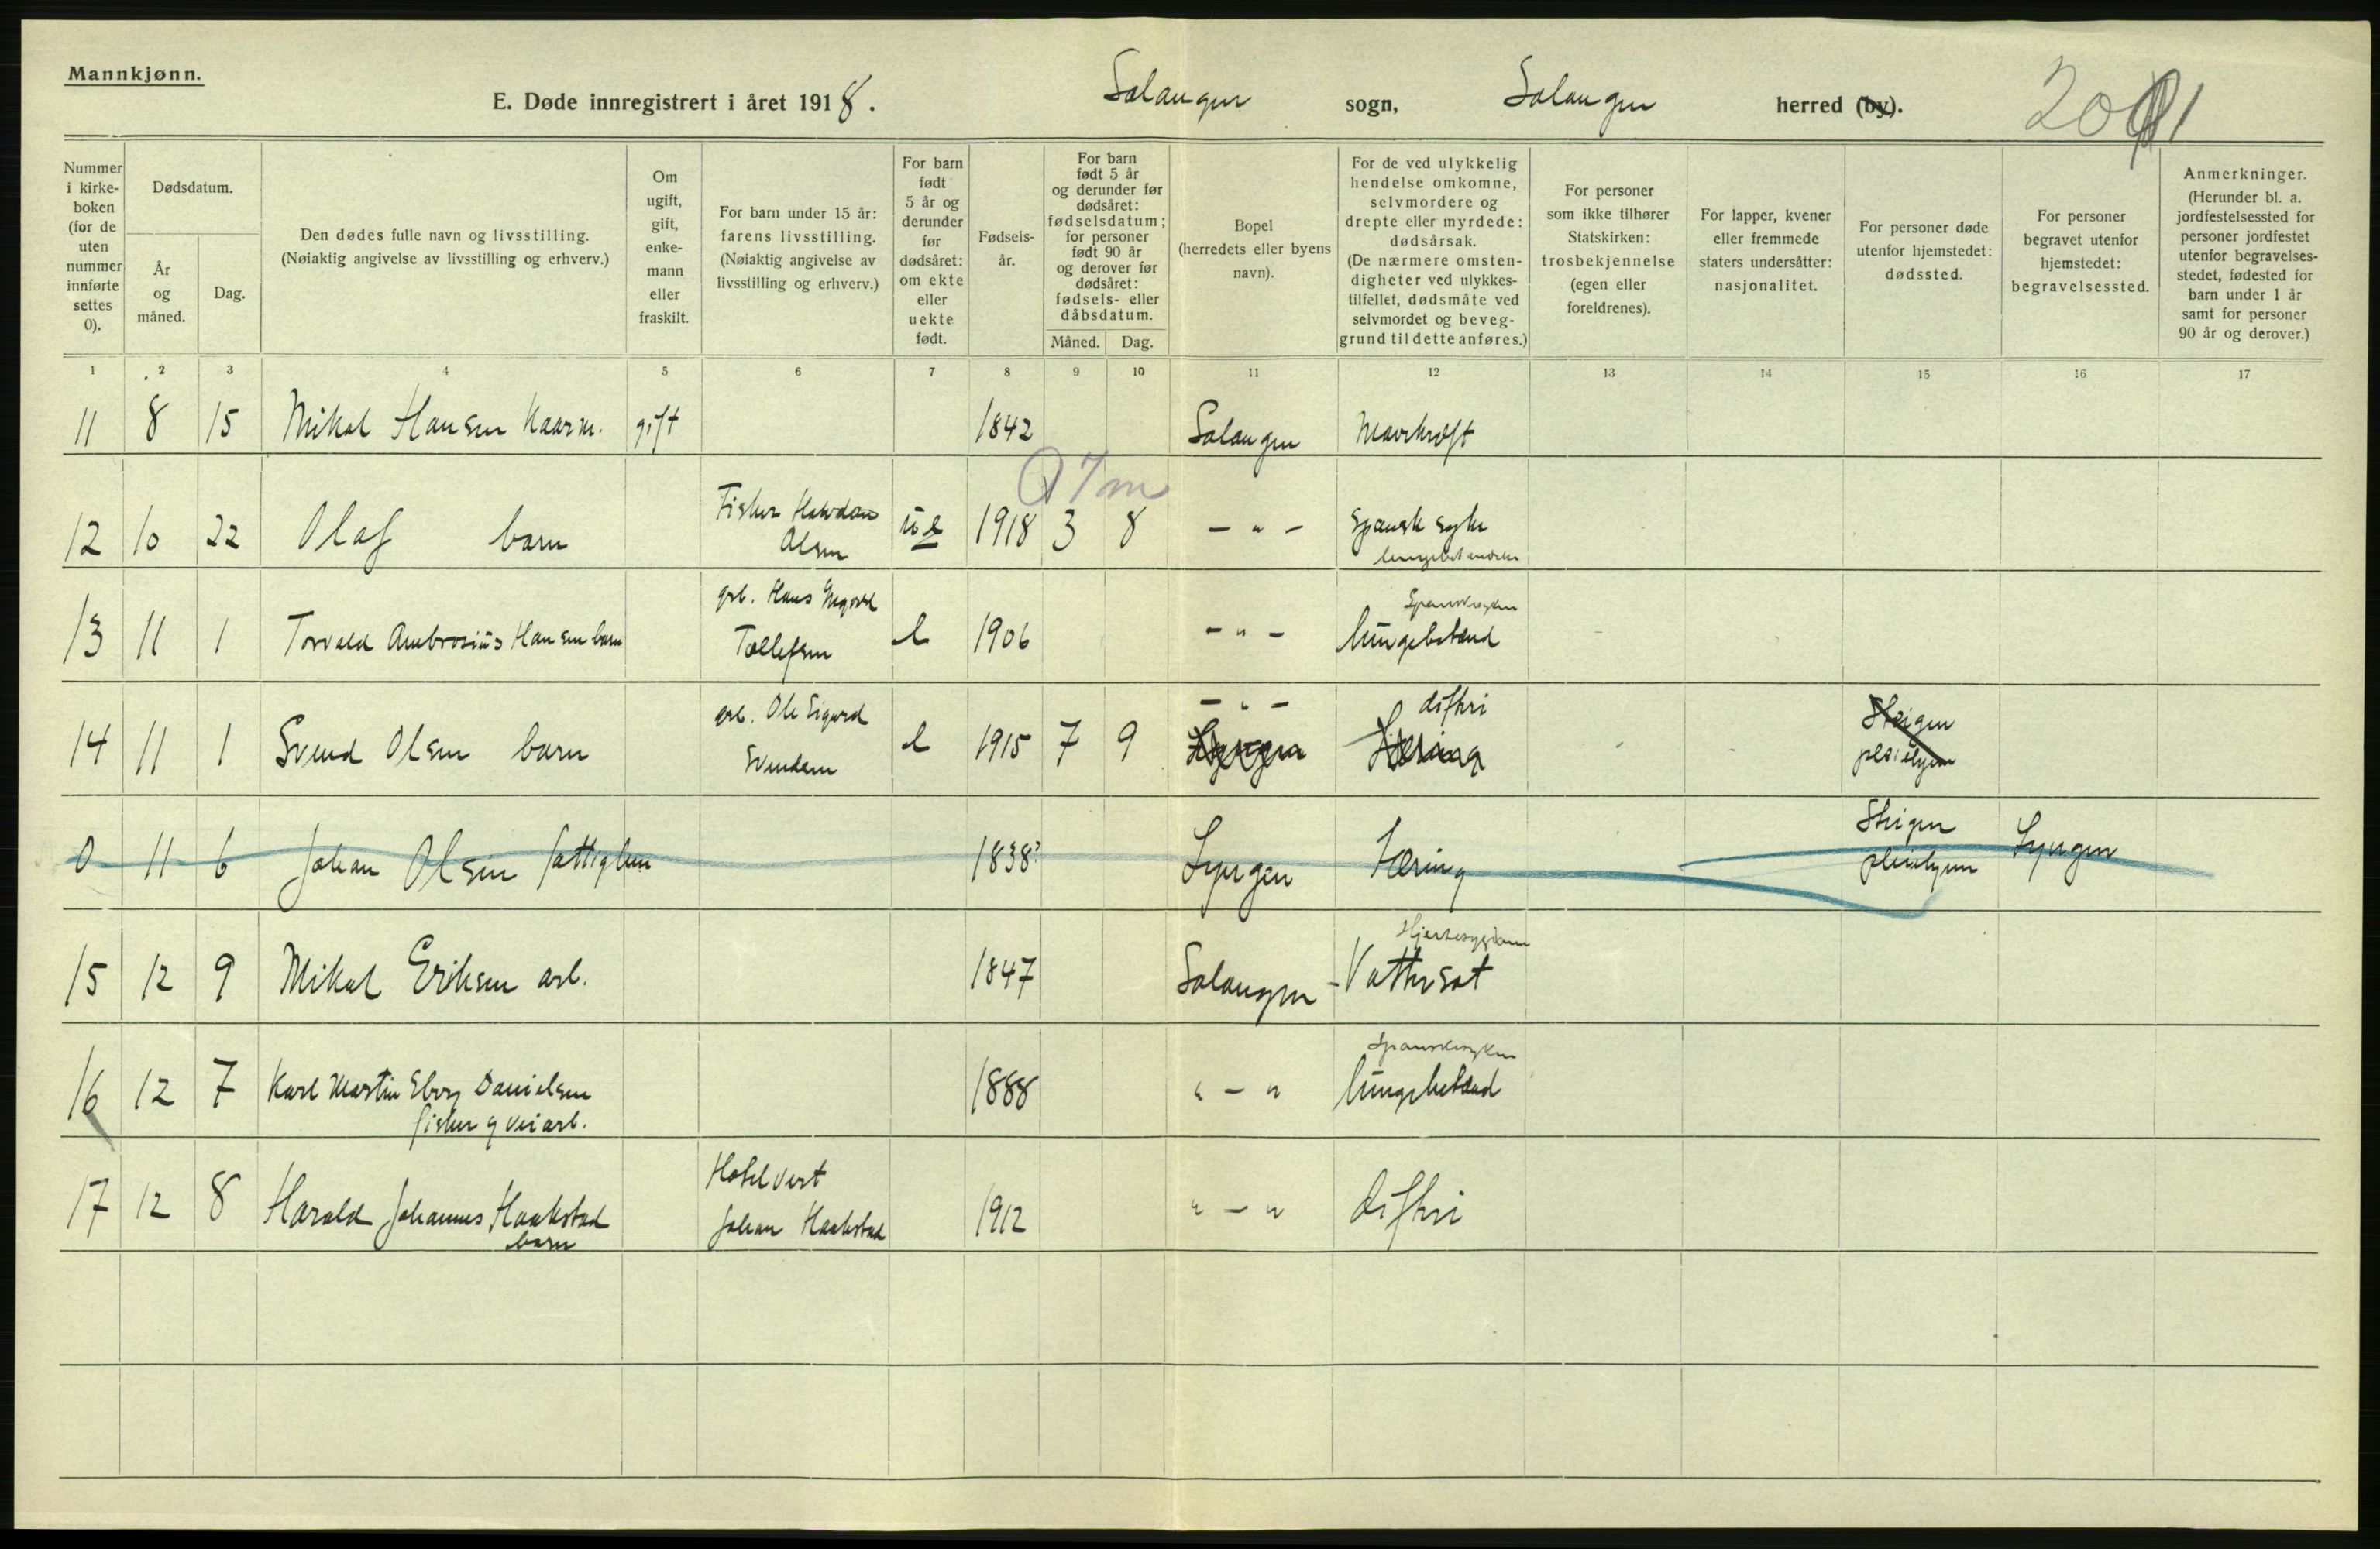 Mannkjønn.
E. Døde innregistrert i året 1918. Salangen sogn, Salangen herred (by). 20 1
Nummer i kirke- boken (for de uten nummer innførte settes 0).
Dødsdatum.
År og måned.
Dag.
Den dødes fulle navn og livsstilling.
(Nøiaktig angivelse av livsstilling og erhverv.)
Om ugift, gift, enke- mann eller fraskilt.
For barn under 15 år: farens livsstilling. (Nøiaktig angivelse av livsstilling og erhverv.)
For barn født 5 år og derunder før dødsåret: om ekte eller uekte født.
Fødsels- år.
For barn født 5 år og derunder før dødsåret: fødselsdatum; for personer født 90 år og derover før dødsåret: fødsels- eller dåbsdatum.
Måned. Dag.
Bopel (herredets eller byens navn).
For de ved ulykkelig hendelse omkomne, selvmordere og drepte eller myrdede: dødsårsak. (De nærmere omsten- digheter ved ulykkes- tilfellet, dødsmåte ved selvmordet og beveg- grund til dette anføres.)
For personer som ikke tilhører Statskirken: trosbekjennelse (egen eller foreldrenes).
For lapper, kvener eller fremmede staters undersåtter: nasjonalitet.
For personer døde utenfor hjemstedet: dødssted.
For personer begravet utenfor hjemstedet: begravelsessted.
Anmerkninger. (Herunder bl. a. jordfestelsessted for personer jordfestet utenfor begravelses- stedet, fødested for barn under 1 år samt for personer 90 år og derover.)
1 2 3 4 5 6 7 8 9 10 11 12 13 14 15 16 17
11 8 15 Mikal Hansen Kaarm. gift 1842 Salangen Mavekræft
7 m
12 10 22 Olaf barn Fisker Hawdan Olsen u e 1918 3 8 - " - Spansk syke
13 11 1 Torvald Ambrosius Hansen barn grb. Hans Tollefsen e 1906 - " - Spanskesyken lungebetænd
14 11 1 Svend Olsen barn grb. Ole Sigurd Svendsen e 1915 7 9 - " - Lyngen diftri Tæring Steigen pleiehjem
0 11 6 Johan Olsen fattiglem 1838? Lyngen Tæring Steigen pleiehjem Lyngen
15 12 9 Mikal Eriksen arb. 1847 Salangen - Hjertesygdom Vattersot
16 12 7 Karl Martin Eborg Danielsen fisker og veiarb. 1888 " - " Spanskesyken lungebetænd
17 12 8 Harald Johannes Haakstad barn Hotelvert Johan Haakstad 1912 " - " diftri